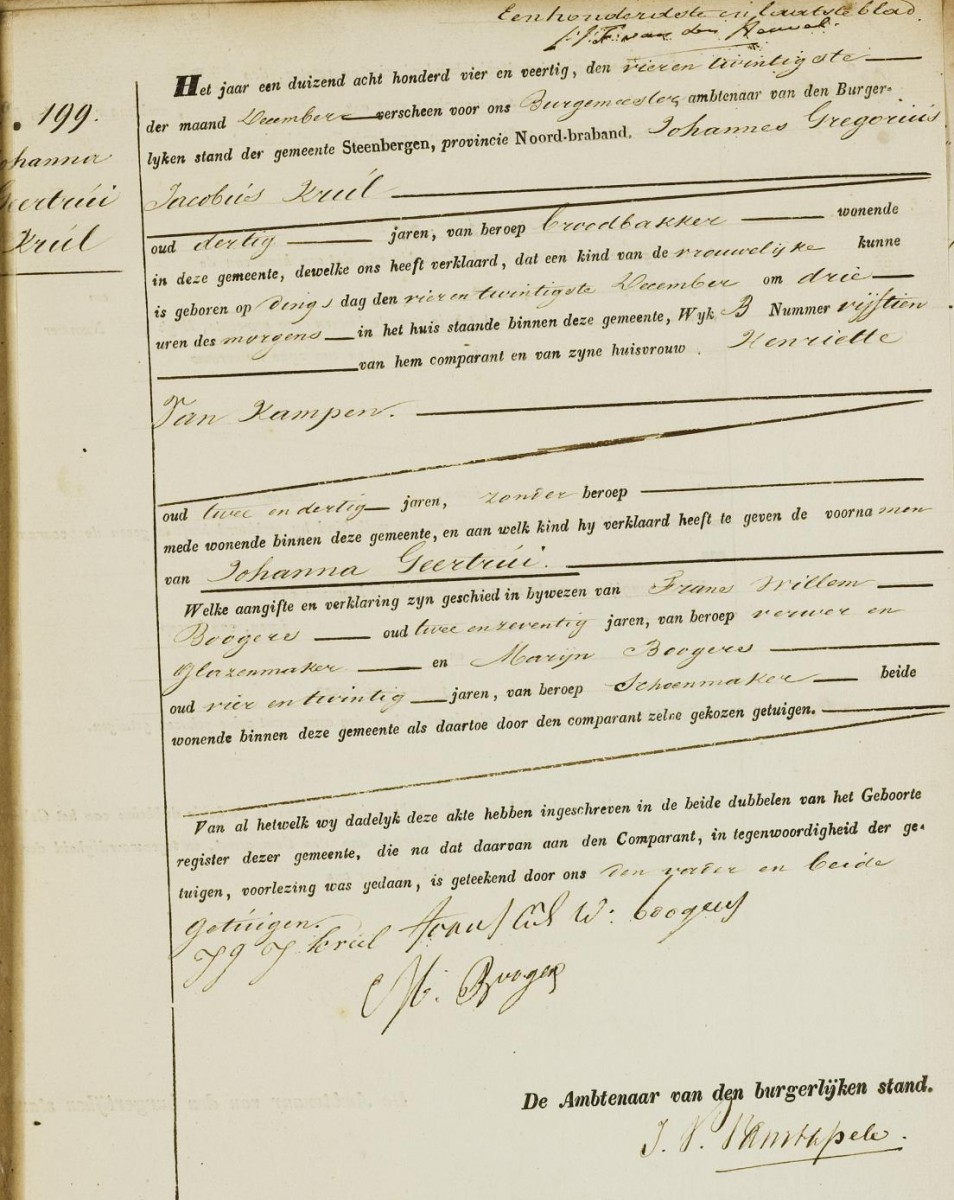 Een honderdste en laatste blad.
F van den Heuvel
199.
ohanna
Geertrúi
Krúl
Het jaar een duizend acht honderd vier en veertig, den vier en twintigste
der maand December verscheen voor ons Burgemeester ambtenaar van den Burger-
lyken stand der gemeente Steenbergen, provincie Noord-braband. Johannes Gregoriús
Jacobús Krúl
oud dertig jaren, van beroep broodbakker wonende
in deze gemeente, dewelke ons heeft verklaard, dat een kind van de vrouwelijke kunne
is geboren op dings dag den vier en twintigste December om drie
uren des morgens in het huis staande binnen deze gemeente, Wyk B Nummer vijftien
van hem comparant en van zyne huisvrouw. Henriette
Van Kampen.
oud twee en dertig jaren, zonder beroep
mede wonende binnen deze gemeente, en aan welk kind hy verklaard heeft te geven de voorna men
van Johanna Geertrúi.
Welke aangifte en verklaring zyn geschied in bywezen van Frans Willem
Boogers oud twee en zeventig jaren, van beroep verwer en
Glazenmaker en Maryn Boogers
oud vier en twintig jaren, van beroep Schoenmaker beide
wonende binnen deze gemeente als daartoe door den comparant zelve gekozen getuigen.
Van al hetwelk wy dadelyk deze akte hebben ingeschreven in de beide dubbelen van het Geboorte
register dezer gemeente, die na dat daarvan aan den Comparant, in tegenwoordigheid der ge-
tuigen, voorlezing was gedaan, is geteekend door ons den vader en beide
getúigen.
J G J Krúl W. boogers
M. Boogers
De Ambtenaar van den burgerlijken stand.